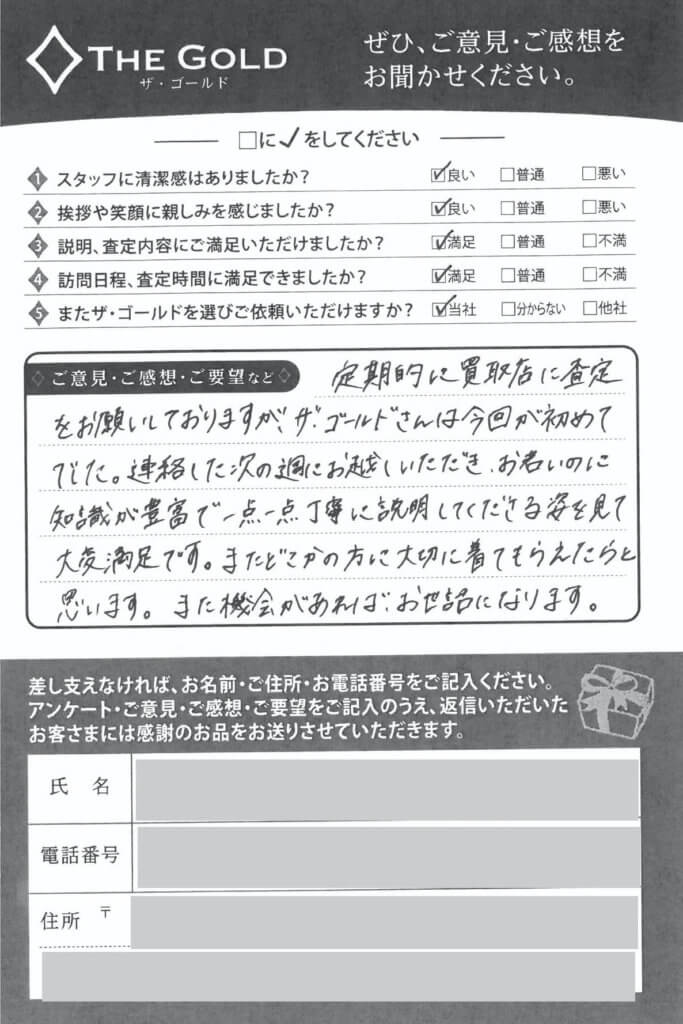 THE GOLD
ザ・ゴールド
ぜひ、ご意見・ご感想を
お聞かせください。
□に✓をしてください
1 スタッフに清潔感はありましたか? ☑良い □普通 □悪い
2 挨拶や笑顔に親しみを感じましたか? ☑良い □普通 □悪い
3 説明、査定内容にご満足いただけましたか? ☑満足 □普通 □不満
4 訪問日程、査定時間に満足できましたか? ☑満足 □普通 □不満
5 またザ・ゴールドを選びご依頼いただけますか? ☑当社 □分からない □他社
ご意見・ご感想・ご要望など
定期的に買取店に査定
をお願いしておりますが、ザ・ゴールドさんは今回が初めて
でした。連絡した次の週にお越しいただき、お若いのに
知識が豊富で一点一点丁寧に説明してくださる姿を見て
大変満足です。またどこかの方に大切に着てもらえたらと
思います。また機会があれば、お世話になります。
差し支えなければ、お名前・ご住所・お電話番号をご記入ください。
アンケート・ご意見・ご感想・ご要望をご記入のうえ、返信いただいた
お客さまには感謝のお品をお送りさせていただきます。
氏 名
電話番号
住所 〒